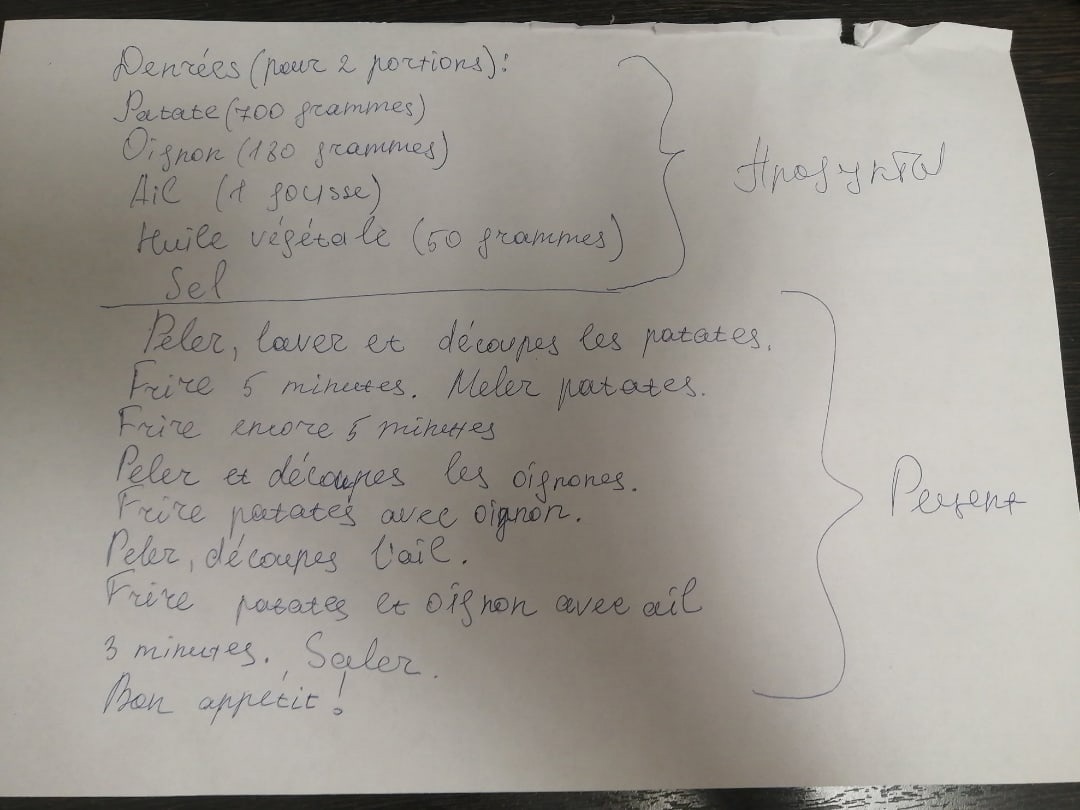 Denrées (pour 2 portions):
Patate (700 grammes)
Oignon (180 grammes)
Ail (1 gousse)
Huile végétale (50 grammes)
Sel
Продукты
Peler, laver et découpes les patates.
Frire 5 minutes. Meler patates.
Frire encore 5 minutes
Peler et découpes les oignones.
Frire patates avec oignon.
Peler, découpes l'ail.
Frire patates et oignon avec ail
3 minutes. Saler.
Bon appétit!
Рецепт